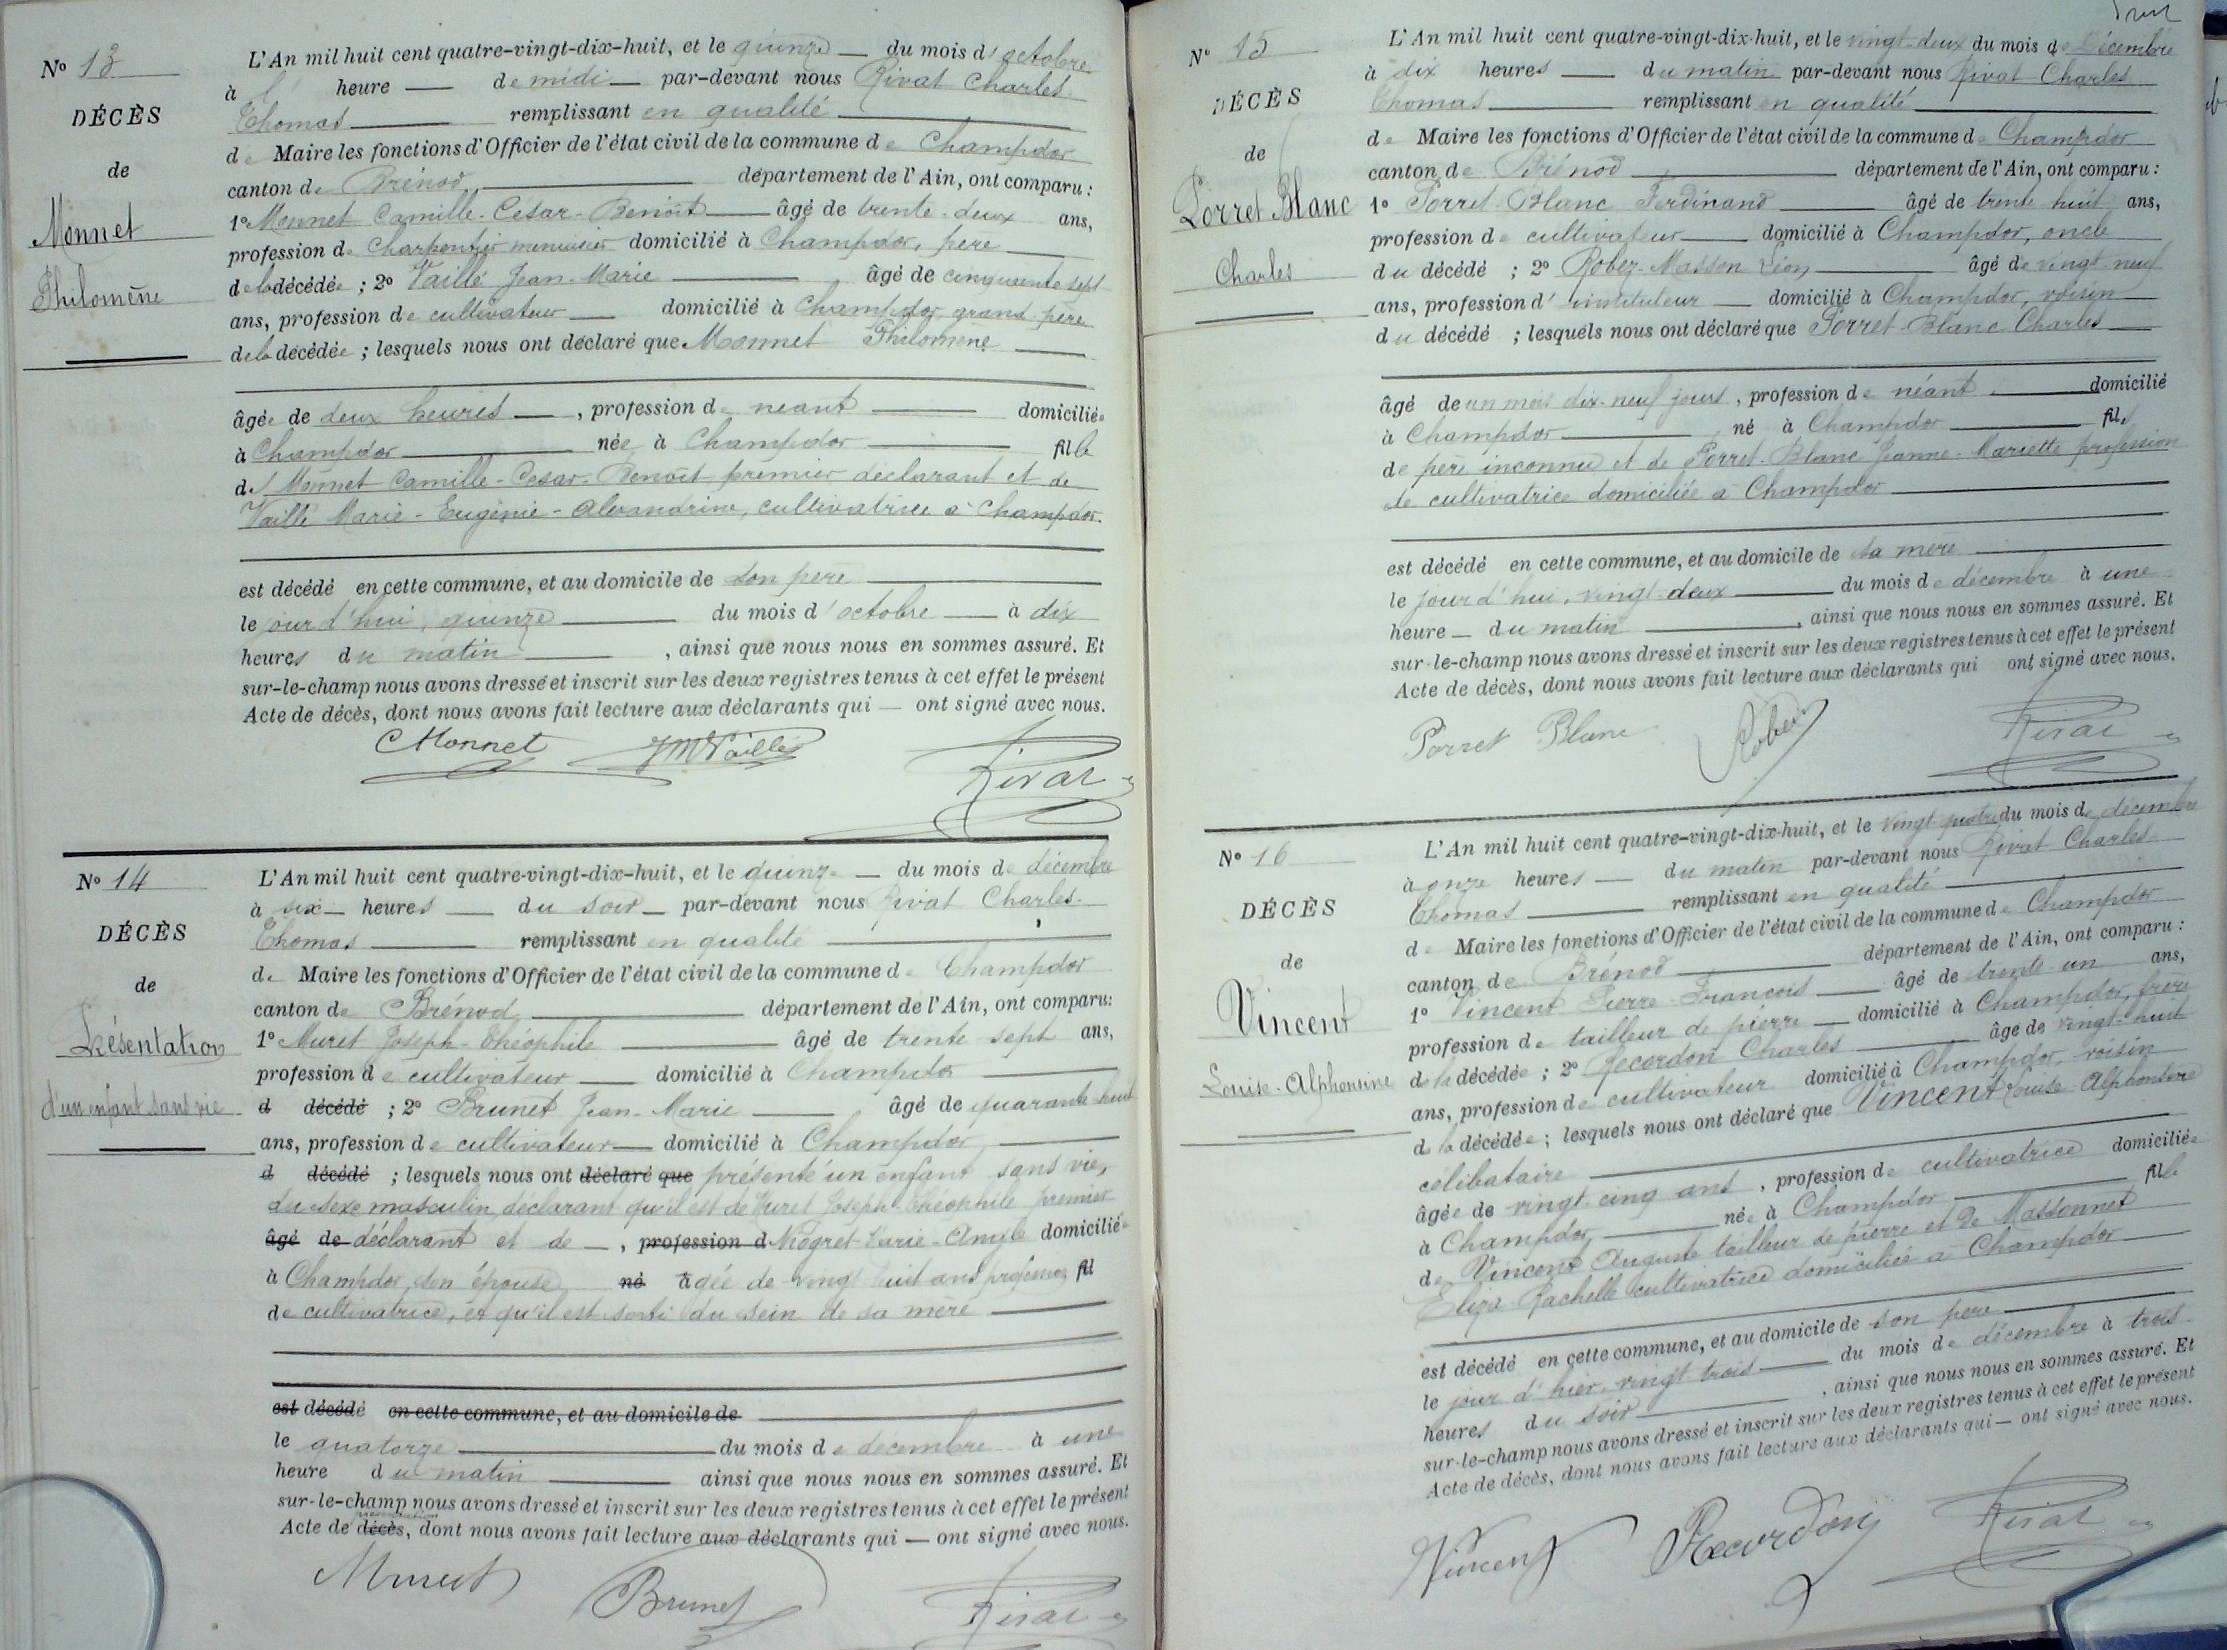 N° 13
DÉCÈS
de
Monnet
Philomène
L'An mil huit cent quatre-vingt-dix-huit, et le quinze du mois d'octobre
à heure de midi par-devant nous Rivat Charles
Thomas remplissant en qualité
de Maire les fonctions d'Officier de l'état civil de la commune de Champdor
canton de Brénod département de l'Ain, ont comparu :
1° Monnet Camille-Cesar-Benoît âgé de trente-deux ans,
profession de charpentier menuisier domicilié à Champdor, père
de la décédée ; 2° Vaillé Jean-Marie âgé de cinquante sept
ans, profession de cultivateur domicilié à Champdor, grand père
de la décédée ; lesquels nous ont déclaré que Monnet Philomène
âgée de deux heures , profession de néant domiciliée
à Champdor née à Champdor fille
de Monnet Camille-Cesar-Benoît premier déclarant et de
Vaillé Marie-Eugénie-Alexandrine, cultivatrice à Champdor.
est décédé en cette commune, et au domicile de son père
le jour d'hui, quinze du mois d'octobre à dix
heures du matin , ainsi que nous nous en sommes assuré. Et
sur-le-champ nous avons dressé et inscrit sur les deux registres tenus à cet effet le présent
Acte de décès, dont nous avons fait lecture aux déclarants qui — ont signé avec nous.
CMonnet JMVaillé
Rivat
N° 14
DÉCÈS
de
Présentation
d'un enfant sans vie
L'An mil huit cent quatre-vingt-dix-huit, et le quinze du mois de décembre
à six heures du soir par-devant nous Rivat Charles
Thomas remplissant en qualité
de Maire les fonctions d'Officier de l'état civil de la commune de Champdor
canton de Brénod département de l'Ain, ont comparu :
1° Muret Joseph-Théophile âgé de trente-sept ans,
profession de cultivateur domicilié à Champdor
d décédé ; 2° Brunet Jean-Marie âgé de quarante-huit
ans, profession de cultivateur domicilié à Champdor
d décédé ; lesquels nous ont déclaré que présenté un enfant sans vie,
du sexe masculin, déclarant qu'il est de Muret Joseph-Théophile premier
âgé de déclarant et de , profession d Niogret Marie-Angèle domiciliée
à Champdor, son épouse né âgée de vingt huit ans profession fil
de cultivatrice, et qu'il est sorti du sein de sa mère
est décédé en cette commune, et au domicile de
le quatorze du mois de décembre à une
heure du matin ainsi que nous nous en sommes assuré. Et
sur-le-champ nous avons dressé et inscrit sur les deux registres tenus à cet effet le présent
présentation
Acte de décès, dont nous avons fait lecture aux déclarants qui — ont signé avec nous.
Muret
Brunet Rivat
N° 15
DÉCÈS
de
Porret Blanc
Charles
L'An mil huit cent quatre-vingt-dix-huit, et le vingt-deux du mois de décembre
à dix heures du matin par-devant nous Rivat Charles
Thomas remplissant en qualité
de Maire les fonctions d'Officier de l'état civil de la commune de Champdor
canton de Brénod département de l'Ain, ont comparu :
1° Porret-Blanc Ferdinand âgé de trente huit ans,
profession de cultivateur domicilié à Champdor, oncle
du décédé ; 2° Robez-Masson Léon âgé de vingt-neuf
ans, profession d'instituteur domicilié à Champdor, voisin
du décédé ; lesquels nous ont déclaré que Porret-Blanc Charles
âgé de un mois dix-neuf jours, profession de néant domicilié
à Champdor né à Champdor fils
de père inconnu et de Porret-Blanc Jeanne-Mariette profession
de cultivatrice domiciliée à Champdor
est décédé en cette commune, et au domicile de sa mère
le jour d'hui, vingt-deux du mois de décembre à une
heure du matin , ainsi que nous nous en sommes assuré. Et
sur-le-champ nous avons dressé et inscrit sur les deux registres tenus à cet effet le présent
Acte de décès, dont nous avons fait lecture aux déclarants qui ont signé avec nous.
Porret Blanc Robez Rivat
N° 16
DÉCÈS
de
Vincent
Louise-Alphonsine
L'An mil huit cent quatre-vingt-dix-huit, et le vingt-quatre du mois de décembre
à onze heures du matin par-devant nous Rivat Charles
Thomas remplissant en qualité
de Maire les fonctions d'Officier de l'état civil de la commune de Champdor
canton de Brénod département de l'Ain, ont comparu :
1° Vincent Pierre-François âgé de trente-un ans,
profession de tailleur de pierre domicilié à Champdor, frère
de la décédée ; 2° Recordon Charles âgé de vingt-huit
ans, profession de cultivateur domicilié à Champdor, voisin
de la décédée ; lesquels nous ont déclaré que Vincent Louise-Alphonsine
célibataire
âgée de vingt-cinq ans , profession de cultivatrice domiciliée
à Champdor née à Champdor fille
de Vincent Auguste tailleur de pierre et de Massonnet
Eliza Rachelle cultivatrice domiciliés à Champdor
est décédé en cette commune, et au domicile de son père
le jour d'hier, vingt trois du mois de décembre à trois
heures du soir , ainsi que nous nous en sommes assuré. Et
sur-le-champ nous avons dressé et inscrit sur les deux registres tenus à cet effet le présent
Acte de décès, dont nous avons fait lecture aux déclarants qui — ont signé avec nous.
Vincent Recordon Rivat